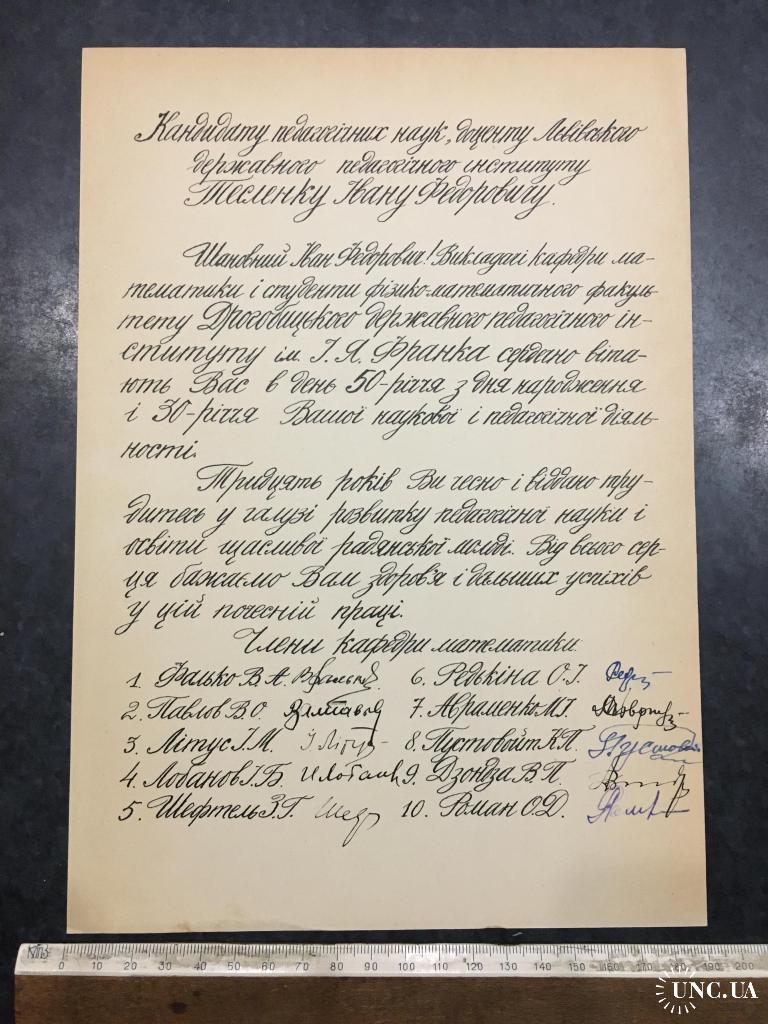 Кандидату педагогічних наук, доценту Львівського
державного педагогічного інституту
Тесленку Івану Федоровичу.
Шановний Іван Федорович! Викладачі кафедри ма-
тематики і студенти фізико-математичного факуль-
тету Дрогобицького державного педагогічного ін-
ституту ім. І. Я. Франка сердечно віта-
ють Вас в день 50-річчя з дня народження
і 30-річчя Вашої наукової і педагогічної діяль-
ності.
Тридцять років Ви чесно і віддано тру-
дитесь у галузі розвитку педагогічної науки і
освіти щасливої радянської молоді. Від всього сер-
ця бажаємо Вам здоров'я і дальших успіхів
у цій почесній праці.
Члени кафедри математики
1. Фалько В. А. 6. Редькіна О. І.
2. Павлов В. О. 7. Авраменко М. І.
3. Літус І. М. 8. Пустовойт К. П.
4. Лобанов І. Б. 9. Дзюндза В. П.
5. Шефтель З. Г. 10. Роман О. Д.
0 10 20 30 40 50 60 70 80 90 100 110 120 130 140 150 160 170 180 190 200
UNC.UA